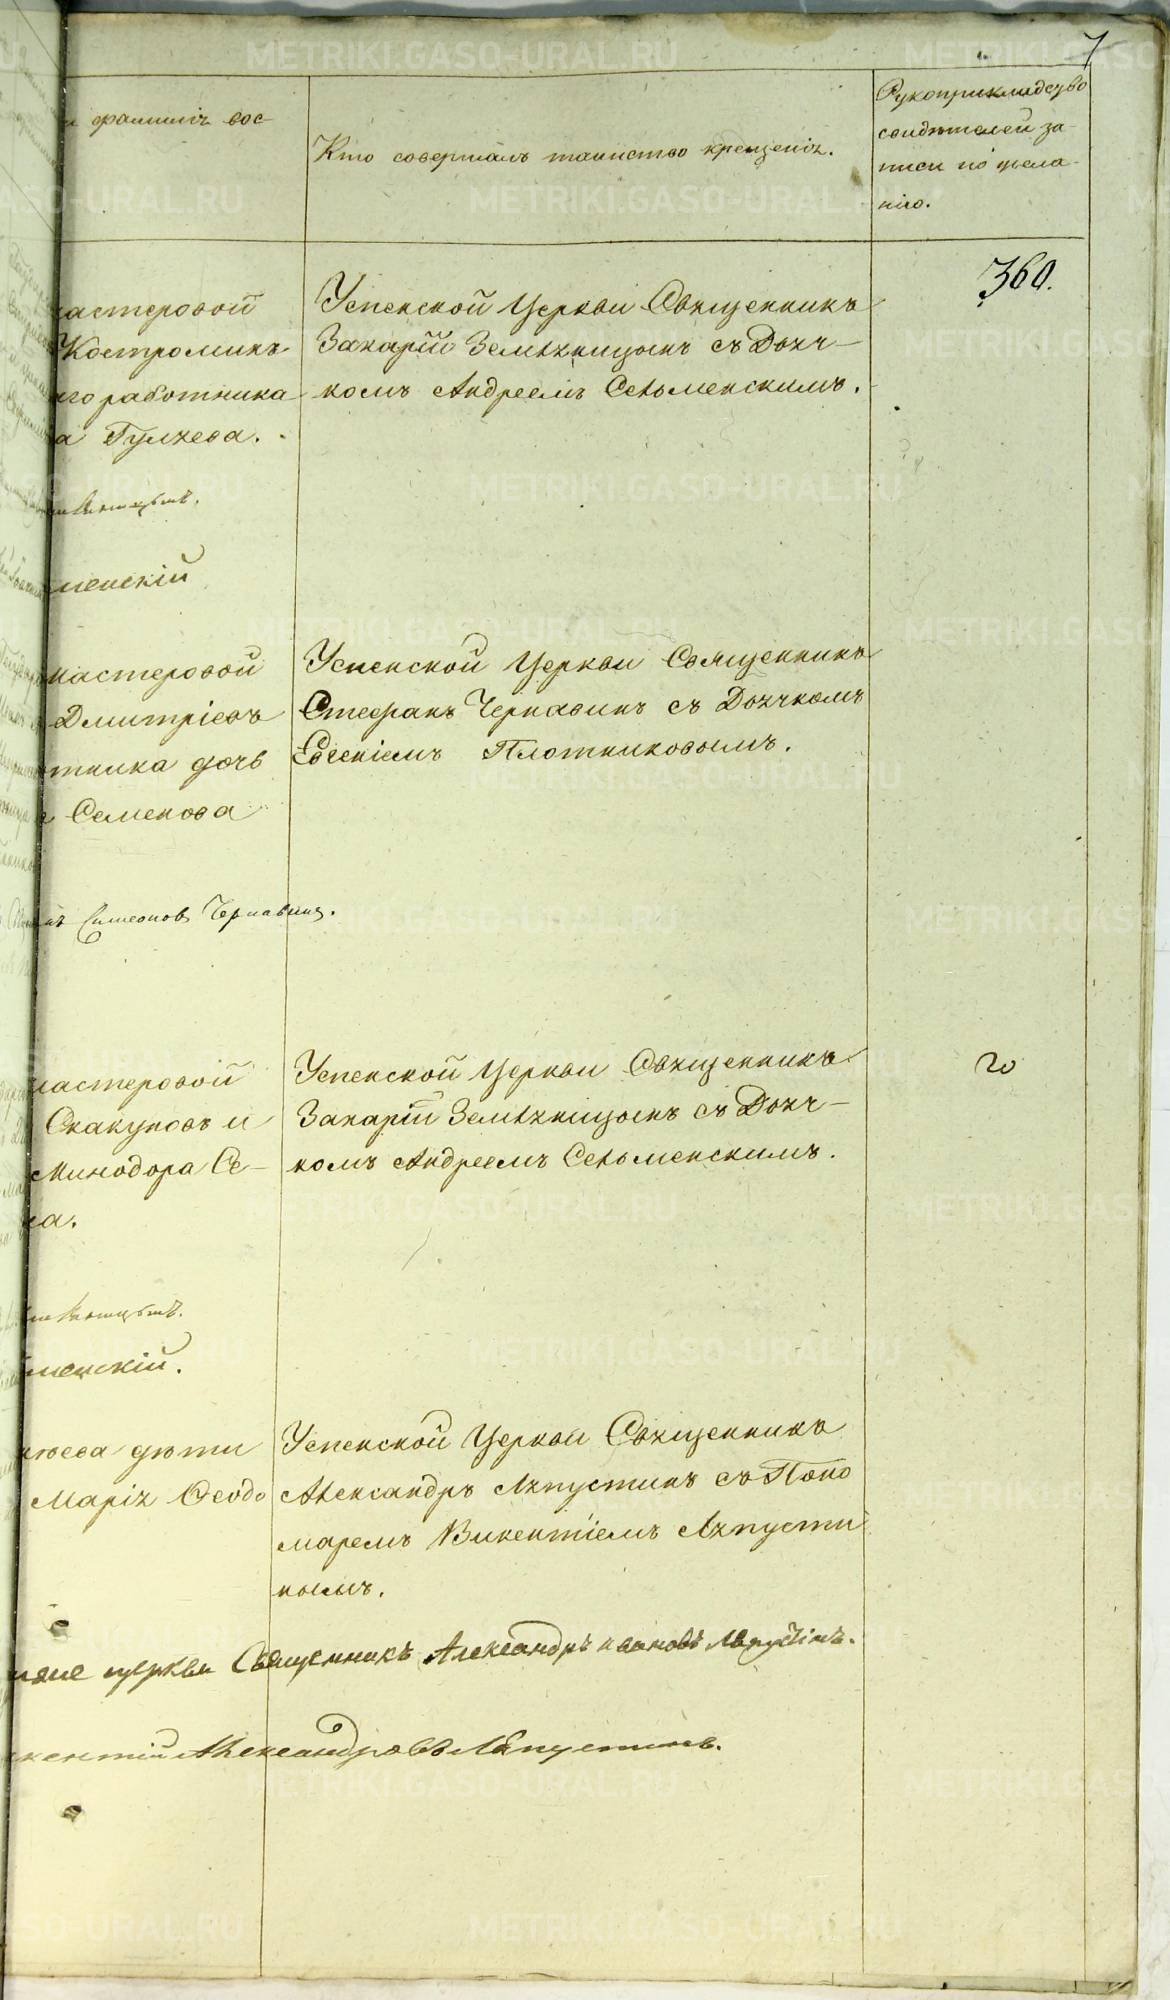 7
и фамилія вос-
Кто совершалъ таинство крещенія.
Рукоприкладство
свидѣтелей за-
писи по жела-
нію.
360.
мастеровой
Костроминъ
его работника
а Гуляева.
менскій
Успенской Церкви Священникъ
Захарій Земляницынъ съ Дьяч-
комъ Андреемъ Сельменскимъ.
мастеровой
Дмитріевъ
тника дочь
Семенова
Симеоновъ Чернавинъ.
Успенской Церкви Священникъ
Стефанъ Чернавинъ съ Дьячкомъ
Евгеніемъ Плотниковымъ.
мастеровой
Скакуновъ и
Минодора Се-
ва.
менскій.
Успенской Церкви Священникъ
Захарій Земляницынъ съ Дьяч-
комъ Андреемъ Сельменскимъ.
дѣти
Марія Ѳеодо
Успенской Церкви Священникъ
Александръ Ляпустинъ съ Поно
маремъ Викентіемъ Ляпусти
нымъ.
церкви Священникъ Александръ Ивановъ Ляпустинъ.
кентій Александровъ Ляпустинъ.
METRIKI.GASO-URAL.RU